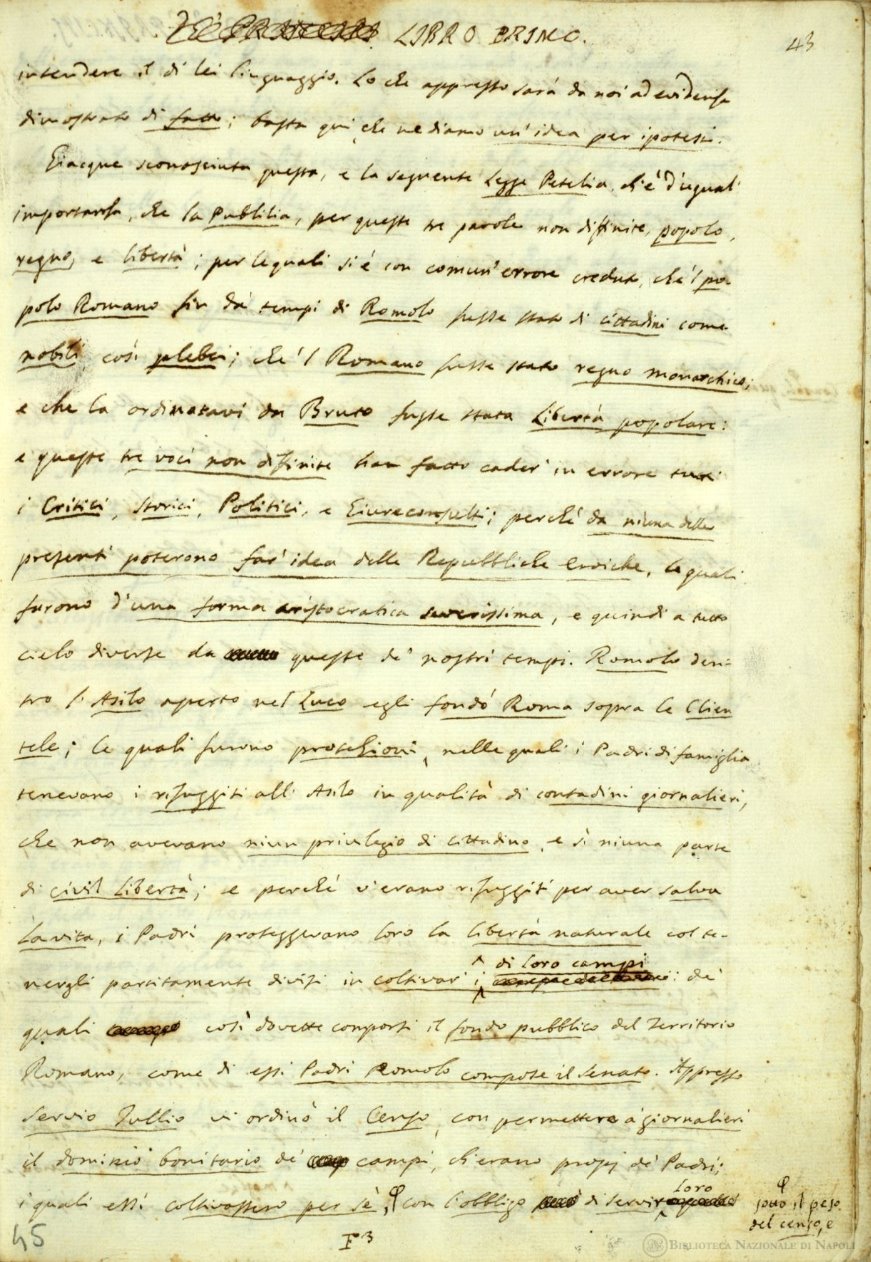 LIBRO PRIMO.
43
intendere il di lei linguaggio. Lo che appresso sarà da noi ad evidenza
dimostrato di fatto; basta qui, che ne diamo un'idea per ipotesi.
Giacque sconosciuta questa, e la seguente Legge Petelia, ch'è d'uguali
importanza, che la Publilia, per queste tre parole non diffinite, popolo,
regno, e libertà; per le quali si è con comun' errore creduto, che 'l po-
polo Romano fin da' tempi di Romolo fusse stato di cittadini come
nobili così plebei; che 'l Romano fusse stato regno monarchico;
e che la ordinatavi da Bruto fusse stata Libertà popolare:
e queste tre voci non difinite han fatto cader' in errore tutti
i Critici, Storici, Politici, e Giureconsulti; perchè da niuna delle
presenti poterono far' idea delle Repubbliche eroiche, le quali
furono d'una forma aristocratica severissima, e quindi a tutto
cielo diverse da queste de' nostri tempi. Romolo den-
tro l' Asilo aperto nel Luco egli fondò Roma sopra le Clien
tele; le quali furono protezioni, nelle quali i Padri di famiglia
tenevano i rifuggiti all' Asilo in qualità di contadini giornalieri,
che non avevano niun privilegio di cittadino, e sì niuna parte
di civil Libertà; e perchè v'erano rifuggiti per aver salva
la vita, i Padri proteggevano loro la libertà naturale col te-
nergli partitamente divisi in coltivar' i di loro campi: de'
quali così dovette comporsi il fondo pubblico del Territorio
Romano, come di essi Padri Romolo compose il Senato. Appresso
Servio Tullio vi ordinò il Censo, con permettere a' giornalieri
il dominio bonitario de' campi, ch'erano propj de' Padri;
i quali essi coltivassero per sè, φ con l'obbligo di servir loro
φ
sotto il peso
del censo, e
45
F 3
BIBLIOTECA NAZIONALE DI NAPOLI